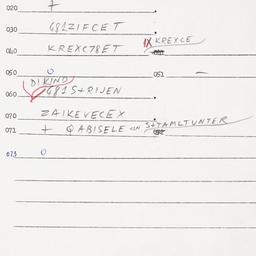 020 +
030 681ZIFCET
040 KREXC78ET IX KREXCE
050 0 051 –
DIKIND
060 681S+RIJEN
070 ZAIKEVECEX
071 + QABISELE S+TAMLTUNTER
073 0